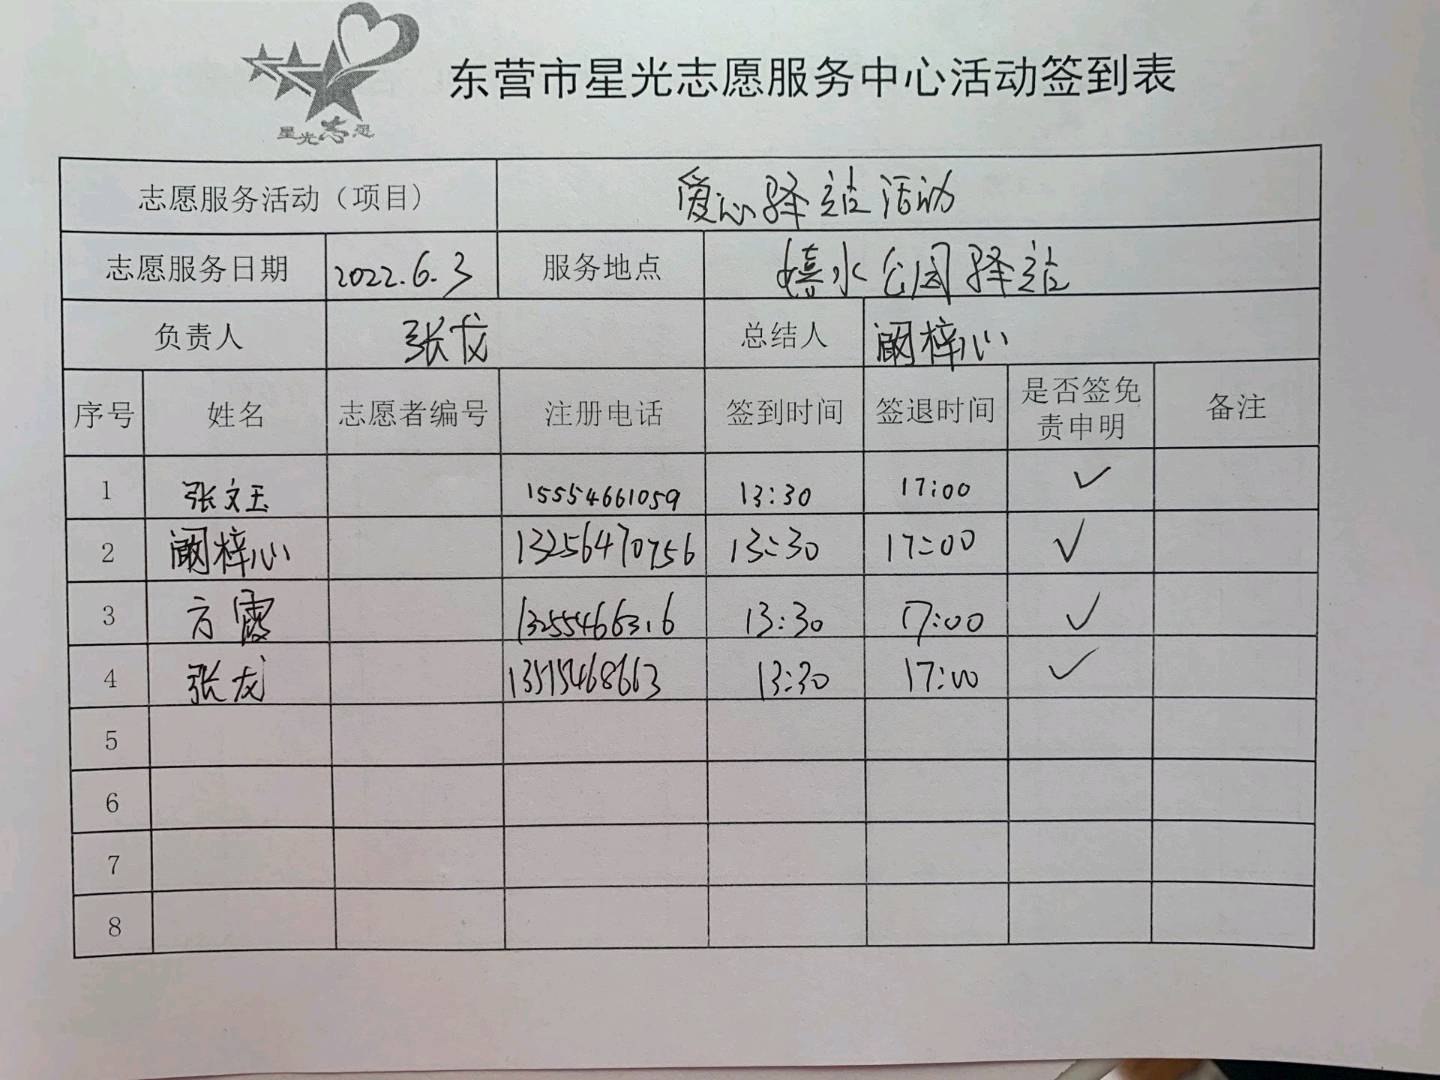 星光志愿
东营市星光志愿服务中心活动签到表
志愿服务活动（项目） 爱心驿站活动
志愿服务日期 2022.6.3 服务地点 嬉水公园驿站
负责人 张龙 总结人 阚梓心
序号 姓名 志愿者编号 注册电话 签到时间 签退时间 是否签免责申明 备注
1 张文玉 15554661059 13:30 17:00 ✓
2 阚梓心 13256470756 13:30 17:00 ✓
3 方霞 13:30 17:00 ✓
4 张龙 13515468663 13:30 17:00 ✓
5
6
7
8